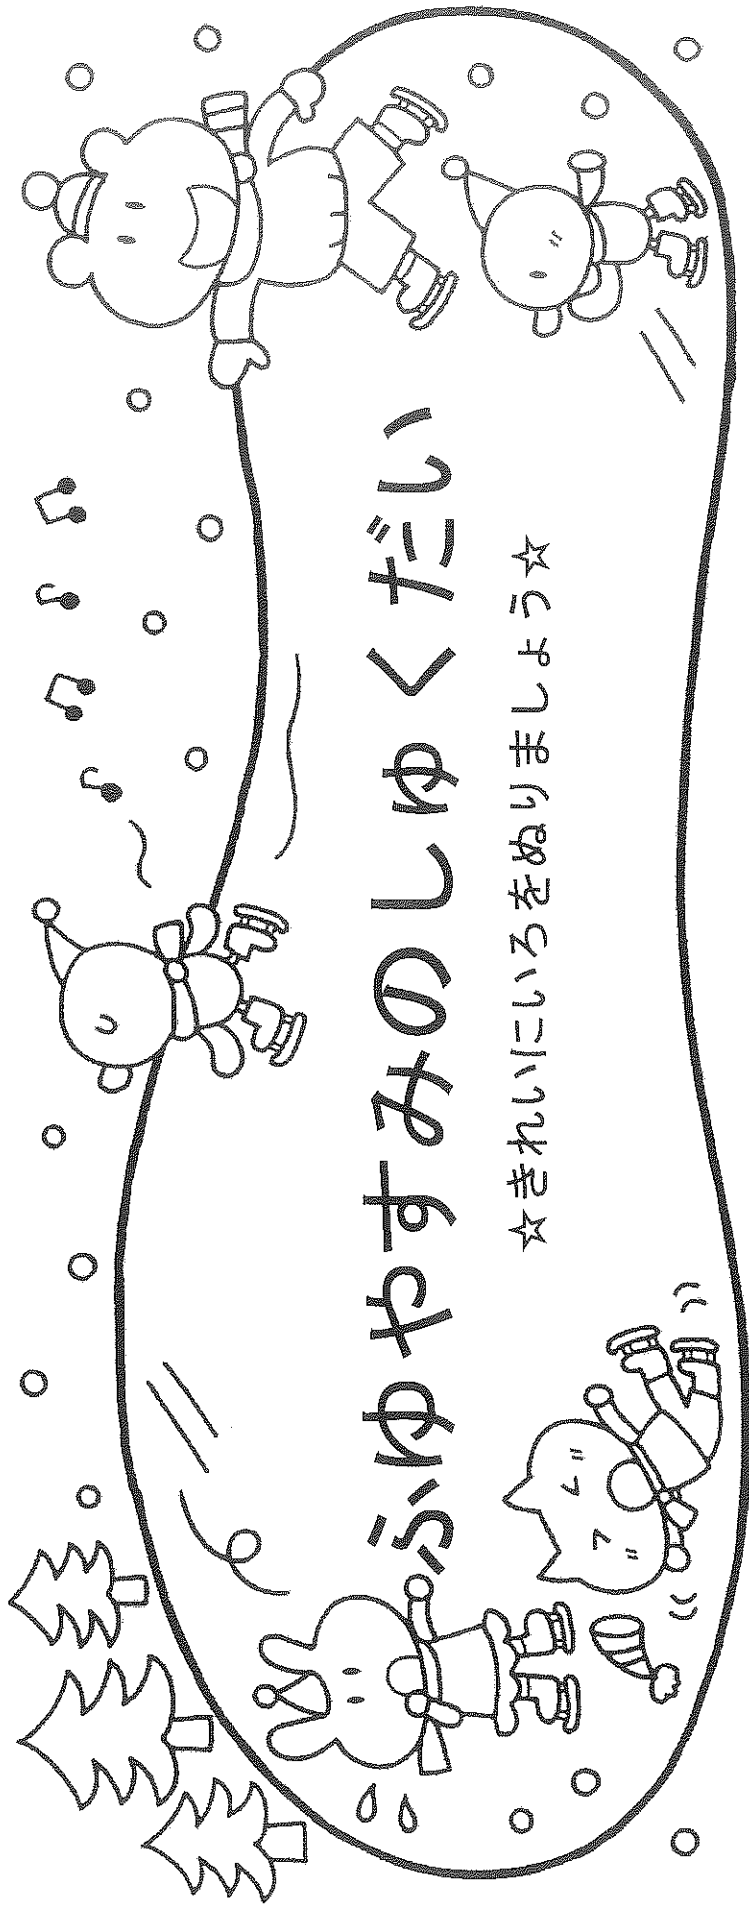 ふゆやすみのしゅくだい
☆きれいにいろをぬりましょう☆